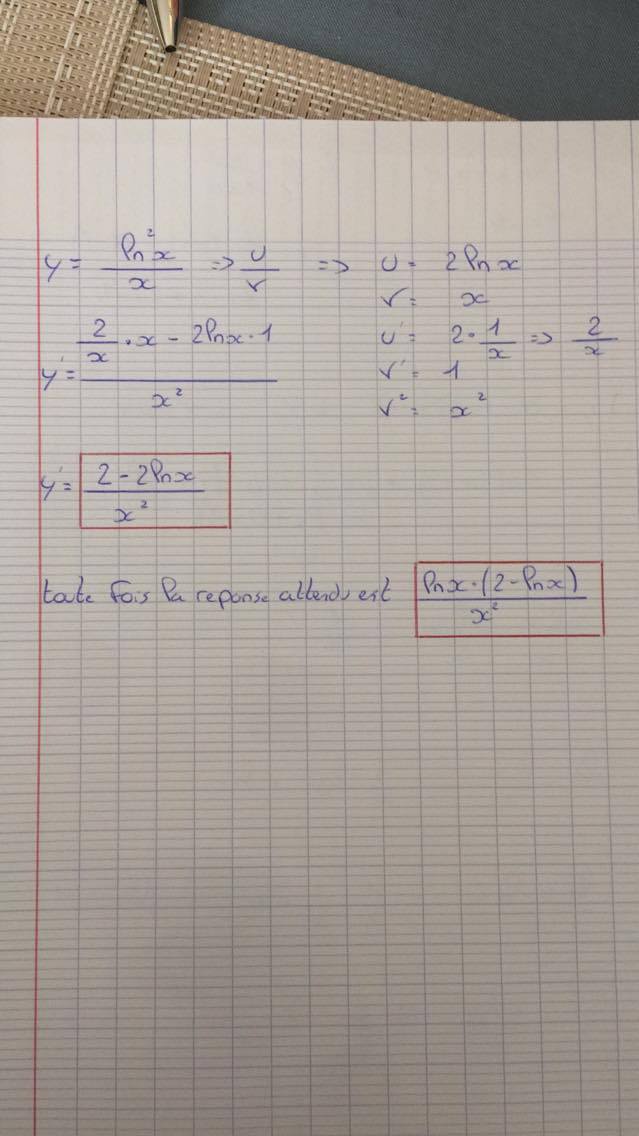 y = ln²x / x => u/v => u = 2lnx
v = x
y' = (2/x · x - 2lnx · 1) / x² u' = 2 · 1/x => 2/x
v' = 1
v² = x²
y' = (2 - 2lnx) / x²
toute fois la reponse attendu est lnx · (2 - lnx) / x²